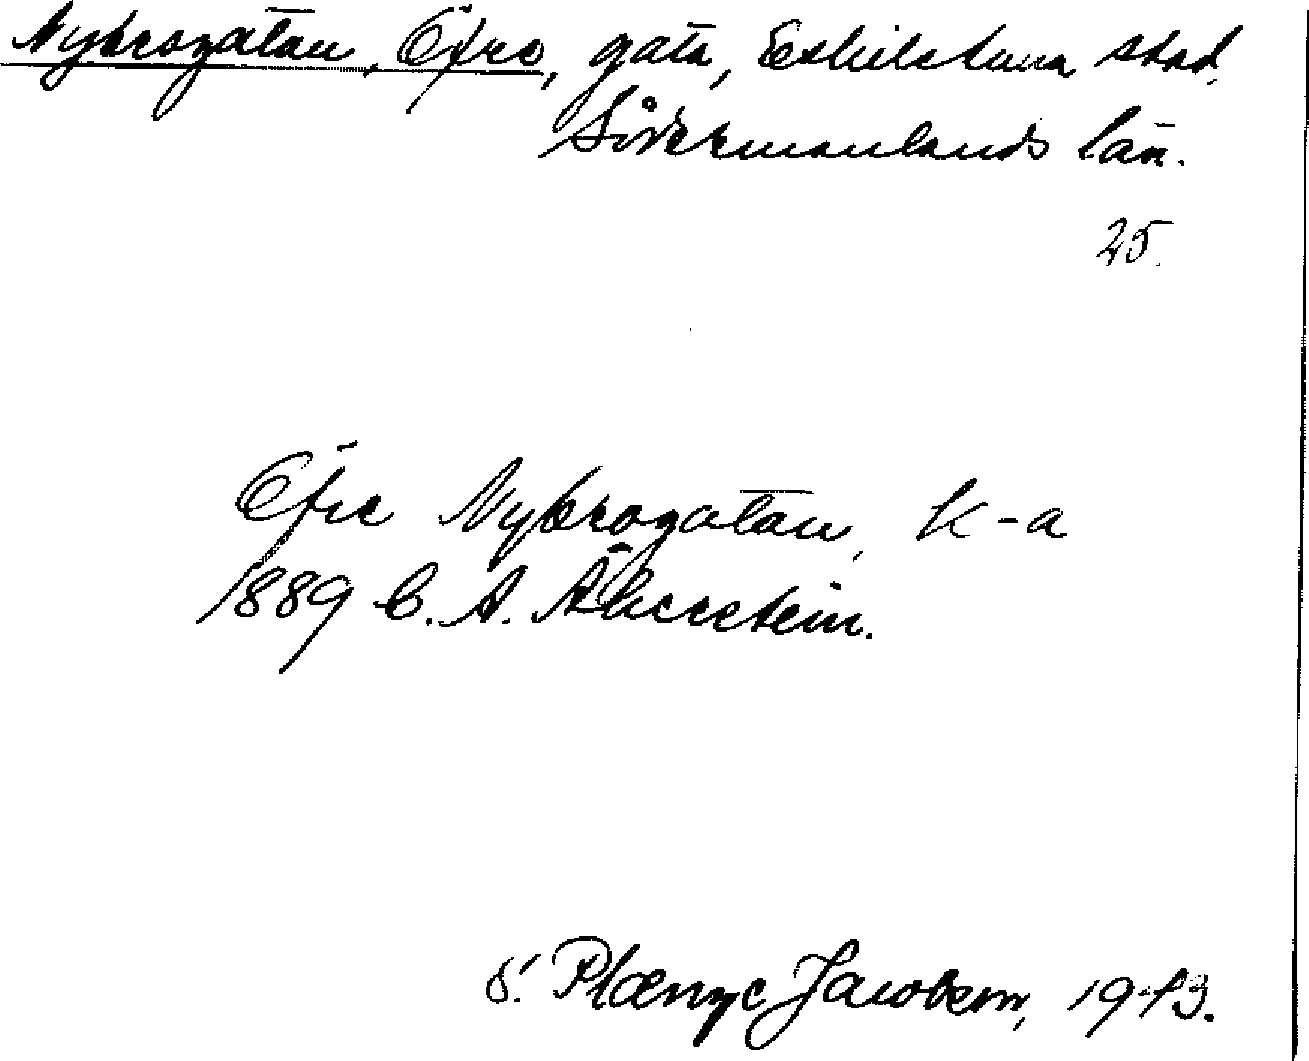 Nybrogatan, Öfre, gata, Eskilstuna stad.
Södermanlands län.
25.
Öfre Nybrogatan, k-a
1889 C. A. Åkerstein.
Jacobson, 1943.